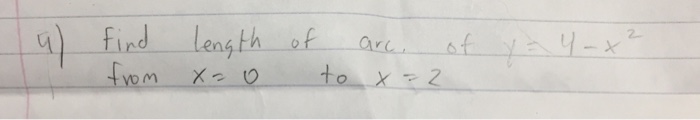 4) find length of arc. of y = 4 - x²
from x = 0 to x = 2